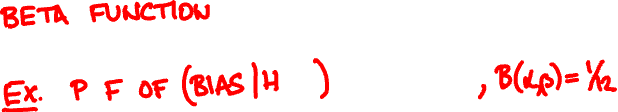 BETA FUNCTION
Ex. P F OF (BIAS|H ) , B(α,β)=1/12